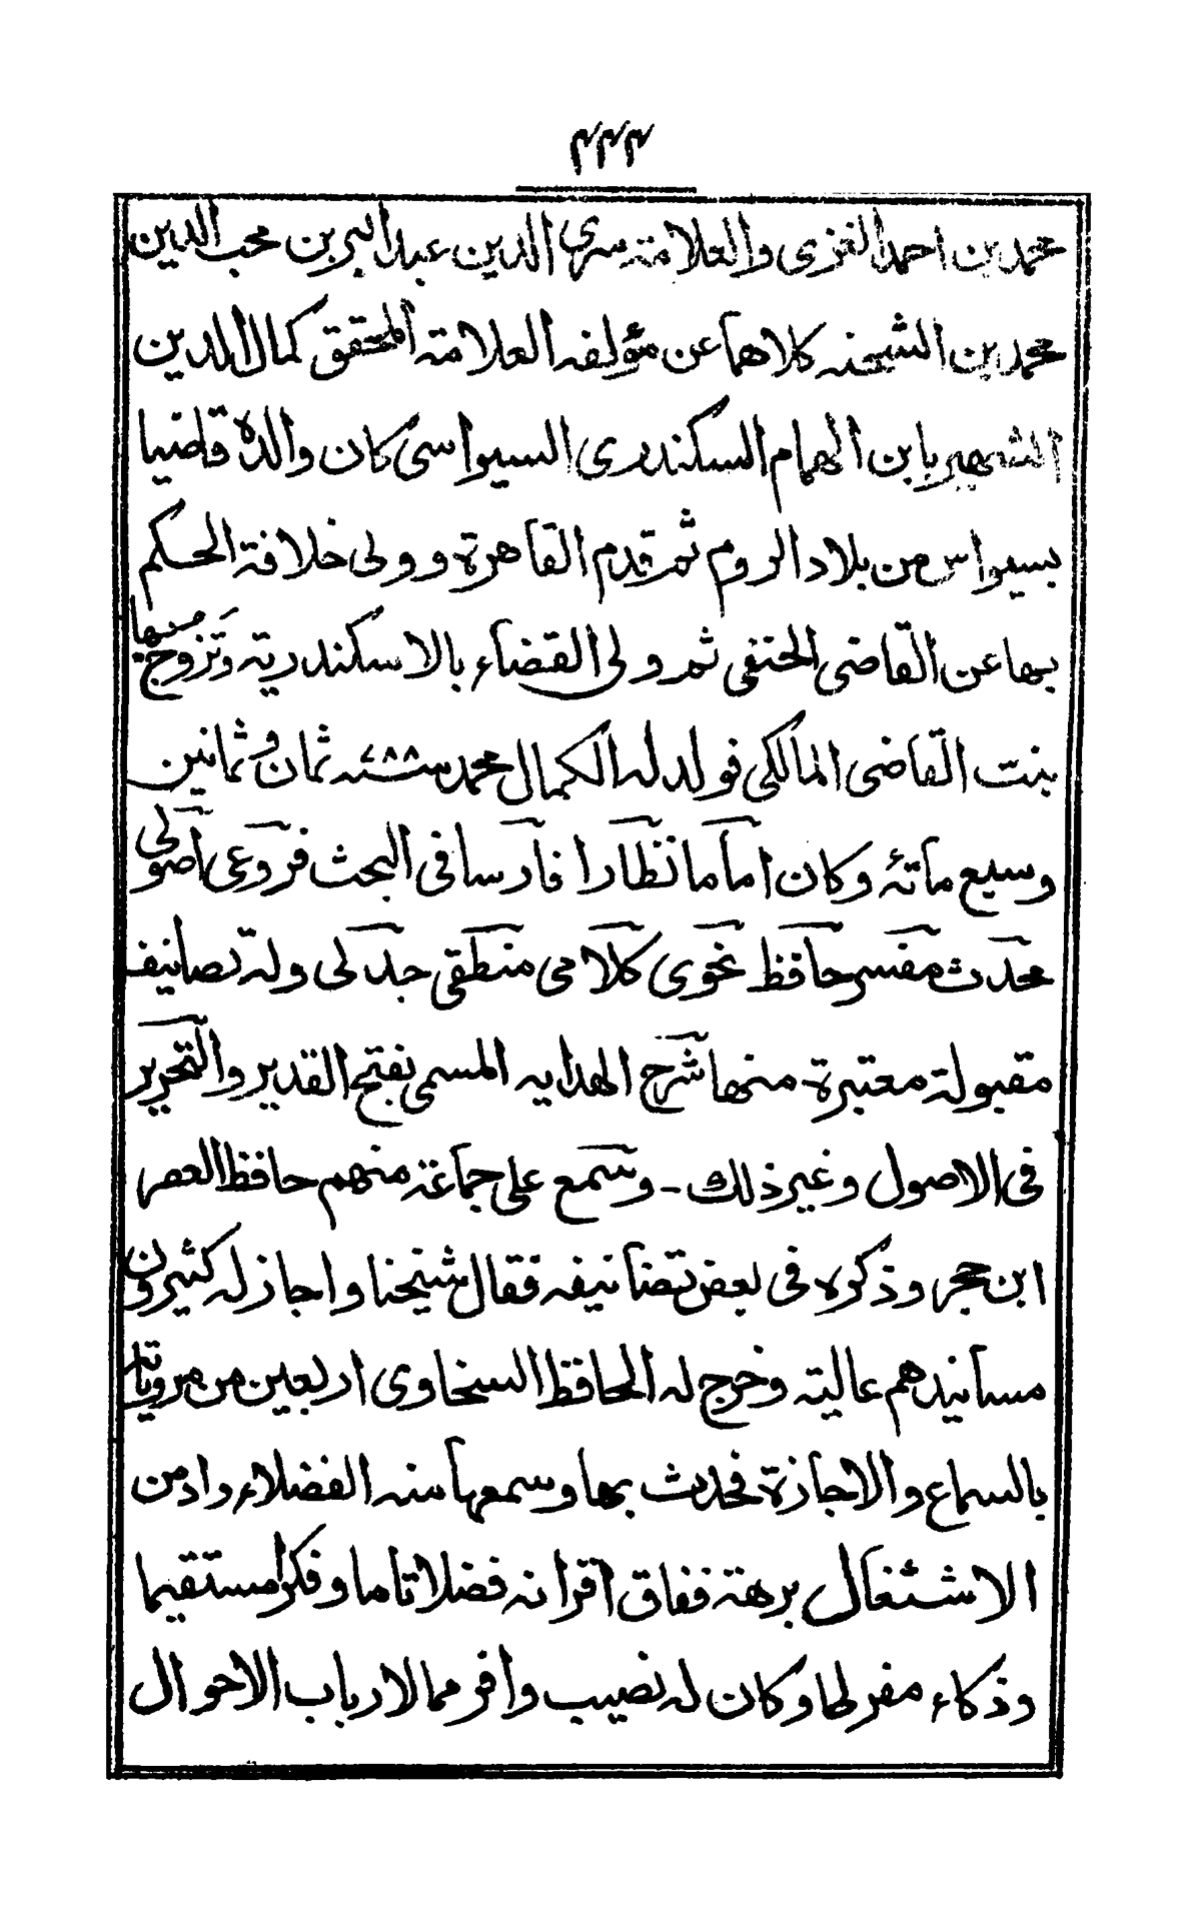 ۴۴۳
محمد بن احمد الغزى والعلامة سرى الدين عبد البر بن محب الدين
محمد بن الشحنه كلاهما عن مؤلفه العلامة المحقق كمال الدين
الشهير بابن الهمام السكندرى السيواسى كان والده قاضيا
بسيواس من بلاد الروم ثم قدم القاهرة و ولى خلافة الحكم
بها عن القاضى الحنفى ثم ولى القضاء بالاسكندرية وتزوج بها
بنت القاضى المالكى فولد له الكمال محمد سنة ۷۸۸ ثمان وثمانين
وسبع مأتة وكان اماما نظارا فارسا فى البحث فروعى اصولى
محدث مفسر حافظ نحوى كلامى منطقى جدلى وله تصانيف
مقبولة معتبرة منها شرح الهدايه المسمى بفتح القدير والتحرير
فى الاصول وغير ذلك - وسمع على جماعة منهم حافظ العصر
ابن حجر وذكره فى بعض تصانيفه فقال شيخنا واجاز له كثيرون
مسانيدهم عالية وخرج له الحافظ السخاوى اربعين من مروياته
بالسماع والاجازة فحدث بها وسمعها منه الفضلاء وادمن
الاشتغال برهة ففاق اقرانه فضلا تاما وفكرا مستقيما
وذكاء مفرطا وكان له نصيب وافر مما لارباب الاحوال